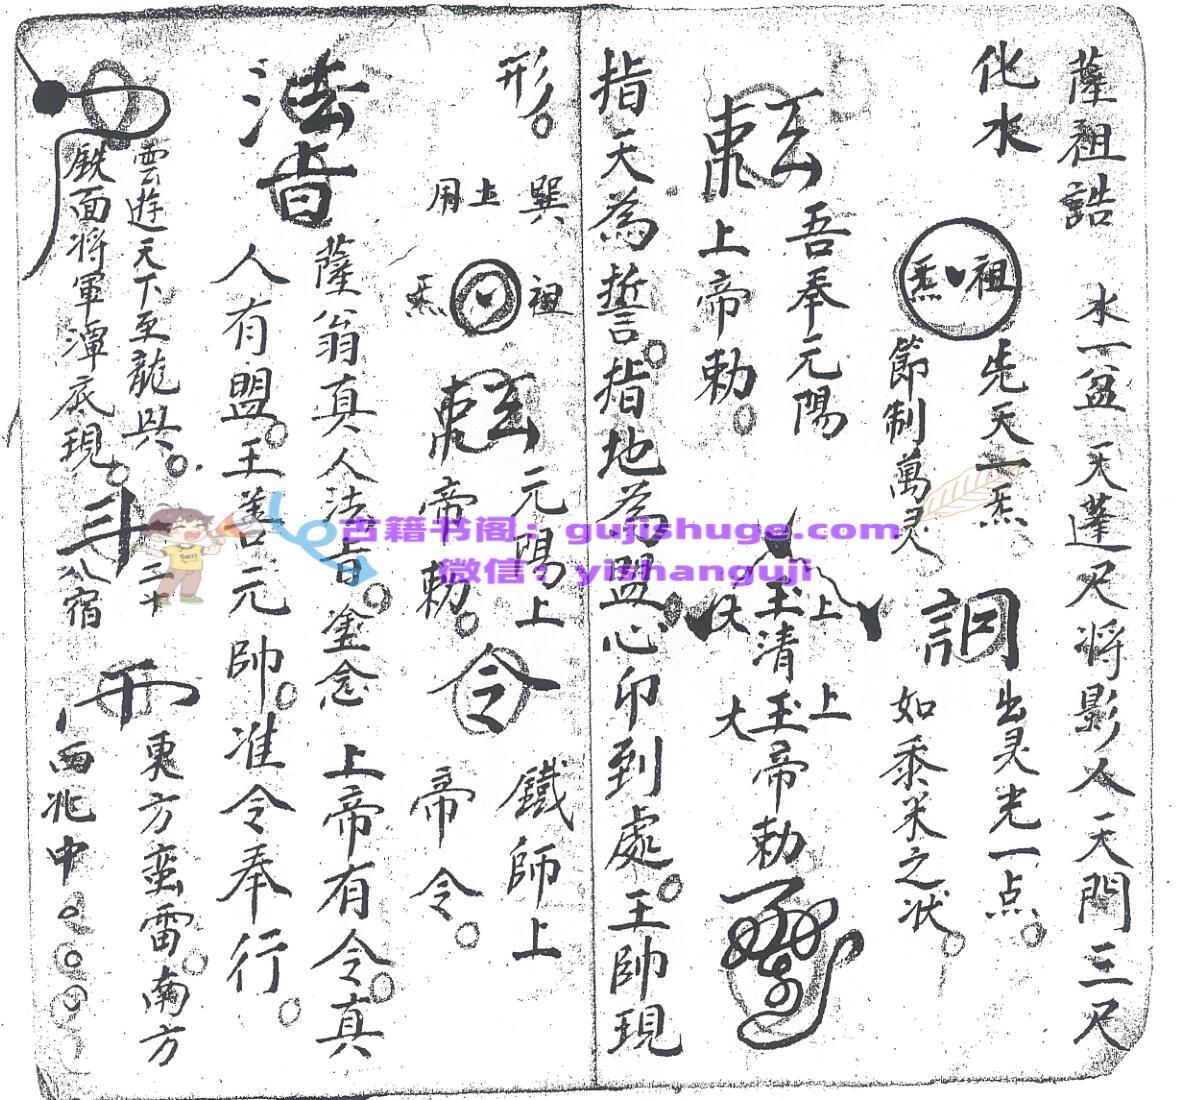 薩祖誥 水一盆 天蓬尺将影人天門三尺
化水
祖炁 先天一炁。出灵光一点。
節制萬灵 如黍米之状。
吾奉元陽
上帝勅。
玉清玉帝勅
上大
上大
指天為誓。指地為盟。心印到處。王帥現
形。
巽 上用
祖炁
元陽上
帝勅。
令
鐵師上
帝令。
法旨
薩翁真人法旨。金念 上帝有令。真
人有盟。王善元帥。准令奉行。
雲遊天下至龍與。
鉄面将軍潭底現。
斗 二十
八宿
東方蛮雷。南方
西北中
古籍书阁：gujishuge.com
微信：yishanguji